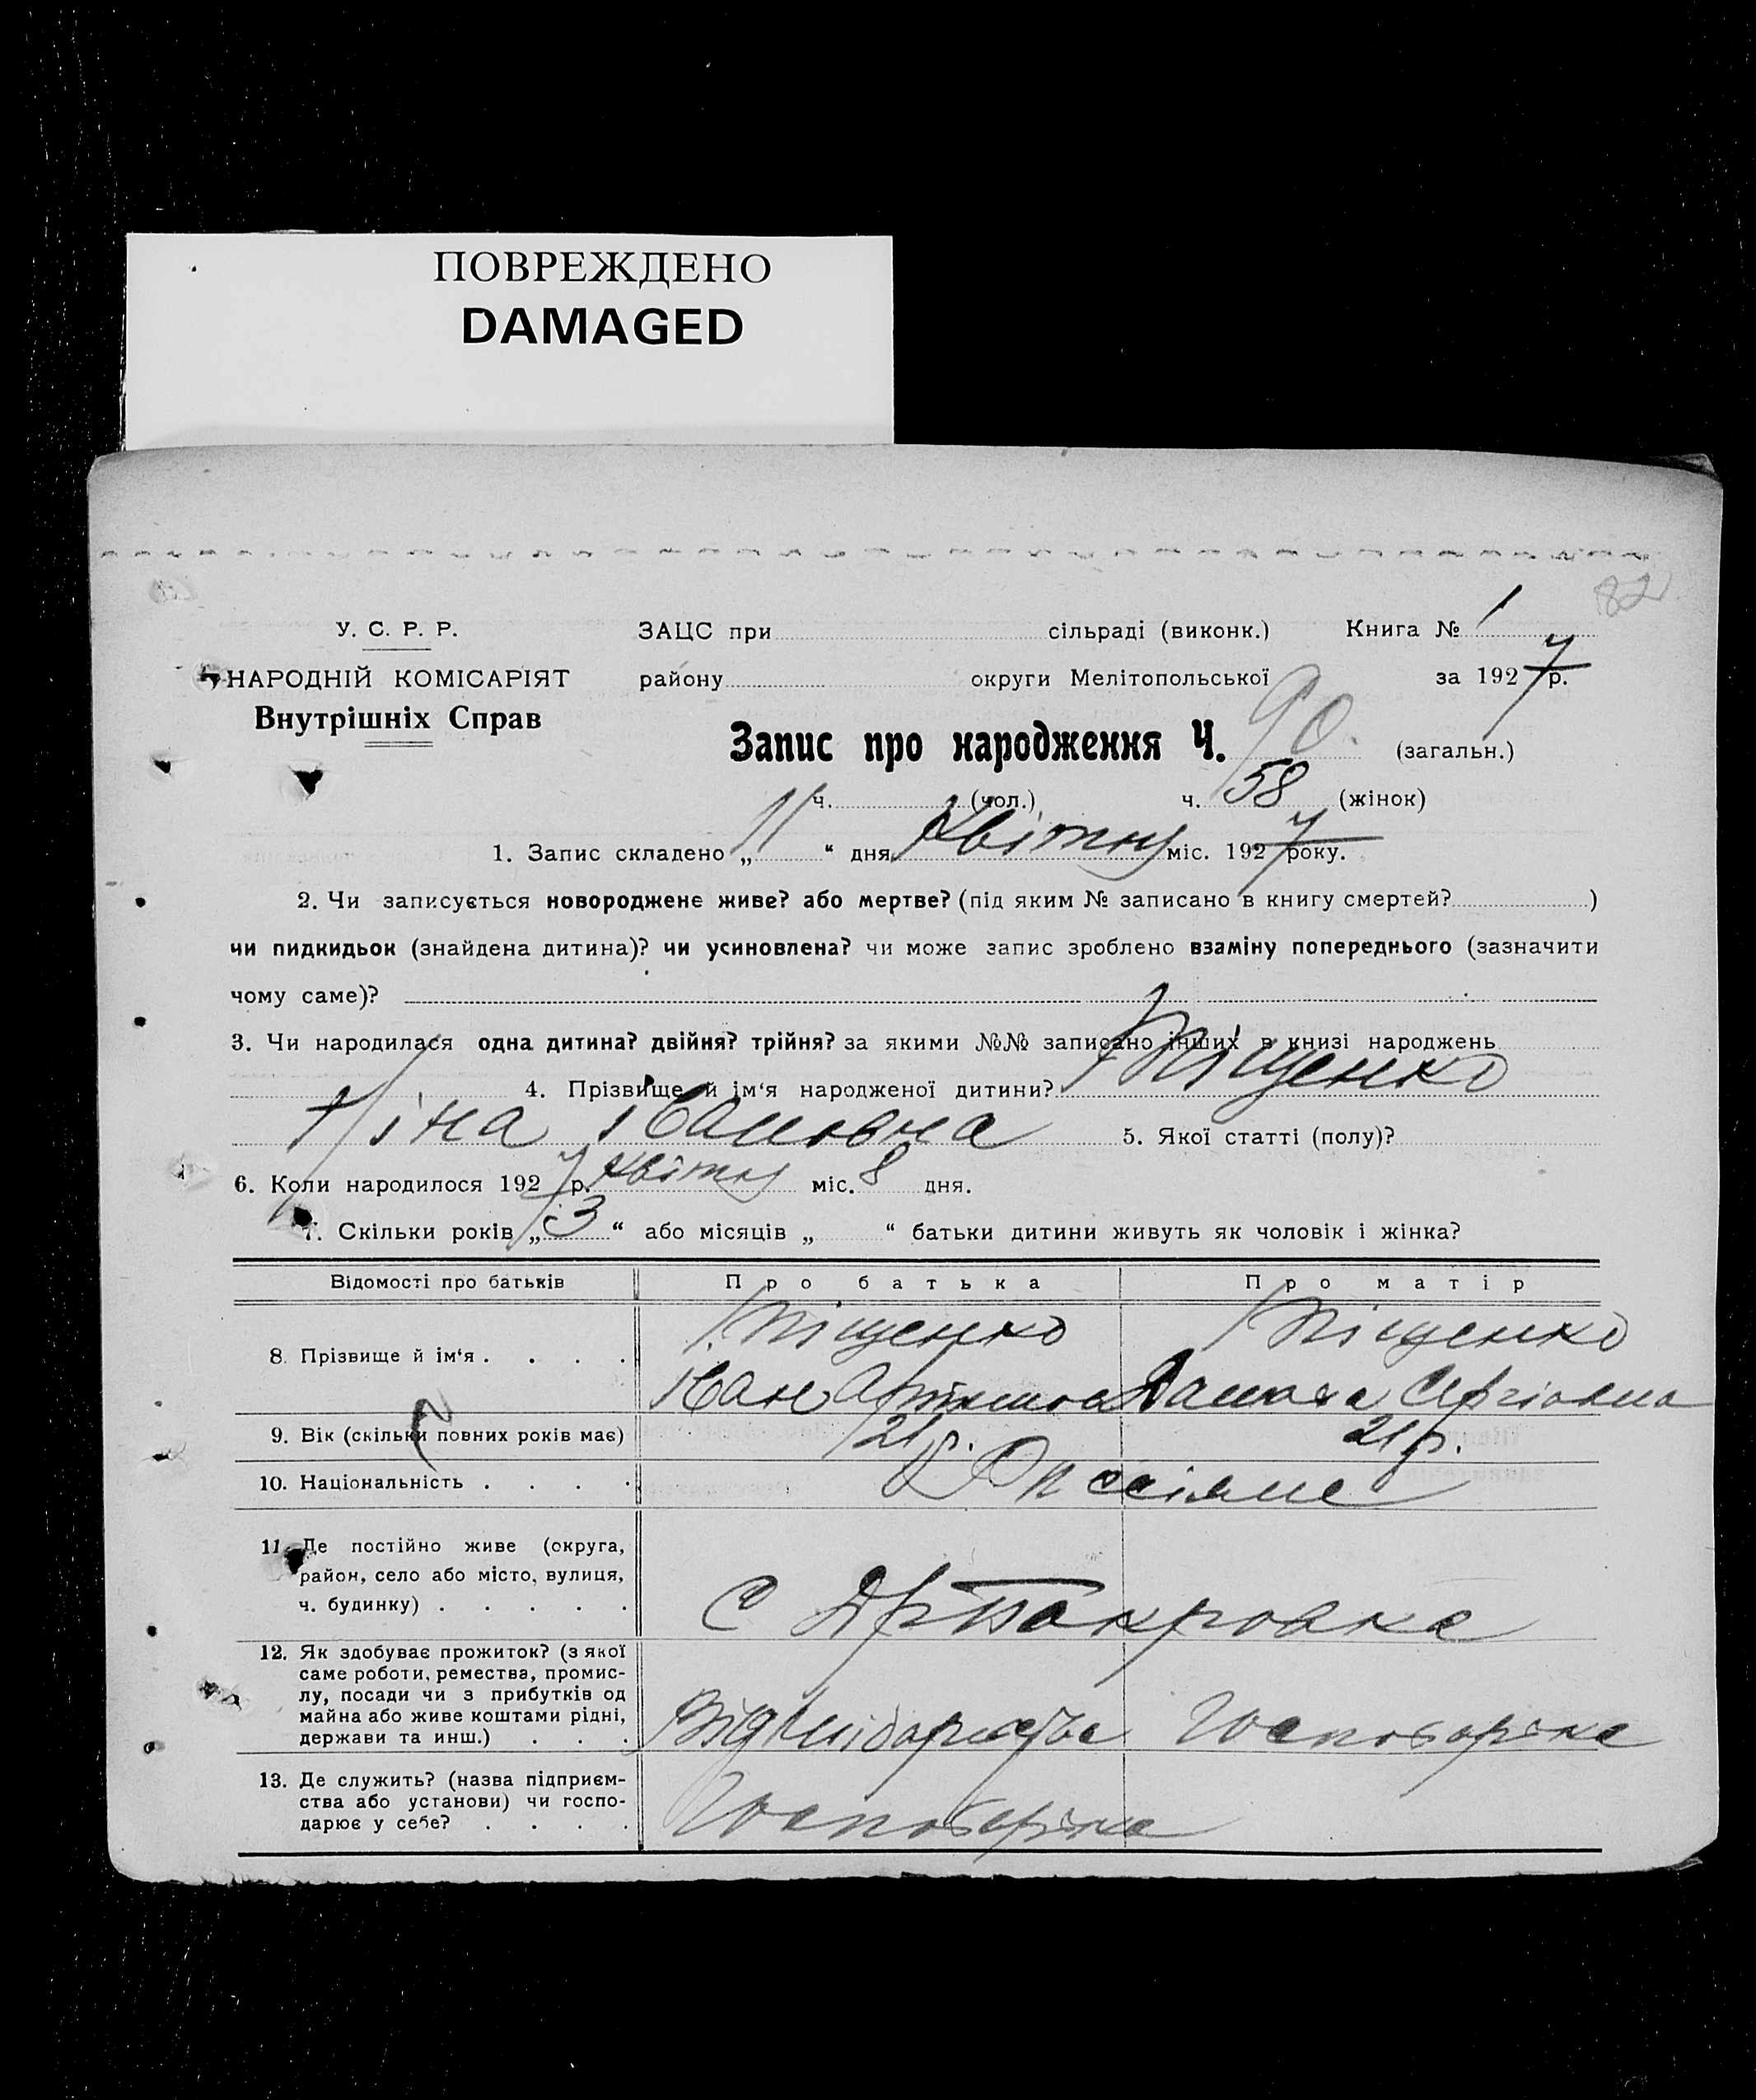 ПОВРЕЖДЕНО
DAMAGED
82
У. С. Р. Р. ЗАЦС при сільраді (виконк.) Книга № 1
НАРОДНІЙ КОМІСАРІЯТ району округи Мелітопольської за 1927 р.
Внутрішніх Справ
Запис про народження Ч. 90. (загальн.)
ч. (чол.) ч. 58 (жінок)
1. Запис складено „ 11 “ дня Квітня міс. 1927 року.
2. Чи записується новороджене живе? або мертве? (під яким № записано в книгу смертей? )
чи пидкидьок (знайдена дитина)? чи усиновлена? чи може запис зроблено взаміну попереднього (зазначити
чому саме)?
3. Чи народилася одна дитина? двійня? трійня? за якими №№ записано інших в книзі народжень
4. Прізвище й ім‘я народженої дитини? Кпіщенко
Ніна Івановна 5. Якої статті (полу)?
6. Коли народилося 1927 р. Квітня міс. 8 дня.
7. Скільки років „ 3 “ або місяців „ “ батьки дитини живуть як чоловік і жінка?
Відомості про батьків Про батька Про матір
8. Прізвище й ім‘я . . . .
Іван
9. Вік (скільки повних років має) 21 р. 21 р.
10. Національність . . . .
11. Де постійно живе (округа,
район, село або місто, вулиця,
ч. будинку) . . . . . С
12. Як здобуває прожиток? (з якої
саме роботи, ремества, промис-
лу, посади чи з прибутків од
майна або живе коштами рідні,
держави та инш.) . . .
13. Де служить? (назва підприєм-
ства або установи) чи госпо-
дарює у себе? . . . .